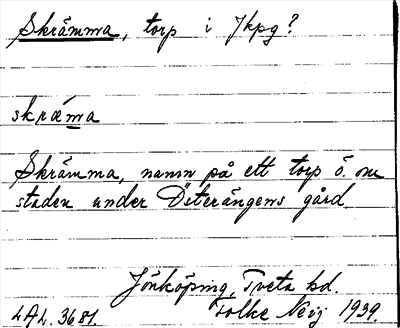 Skrämma, torp i Jkpg?
skræma
Skrämma, namn på ett torp ö. om
staden under Österängens gård.
Jönköping, Tveta hd.
LAL. 3681. Folke Neij 1939.